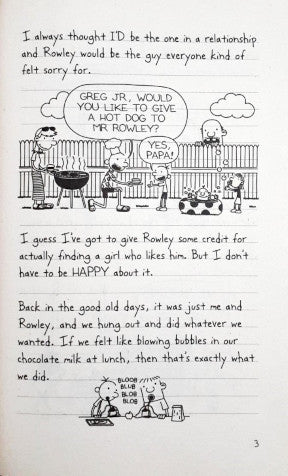 I always thought I'D be the one in a relationship
and Rowley would be the guy everyone kind of
felt sorry for.
GREG JR., WOULD
YOU LIKE TO GIVE
A HOT DOG TO
MR ROWLEY?
YES,
PAPA!
I guess I've got to give Rowley some credit for
actually finding a girl who likes him. But I don't
have to be HAPPY about it.
Back in the good old days, it was just me and
Rowley, and we hung out and did whatever we
wanted. If we felt like blowing bubbles in our
chocolate milk at lunch, then that's exactly what
we did.
BLOOB
BLUB
BLOB
BLOB
3